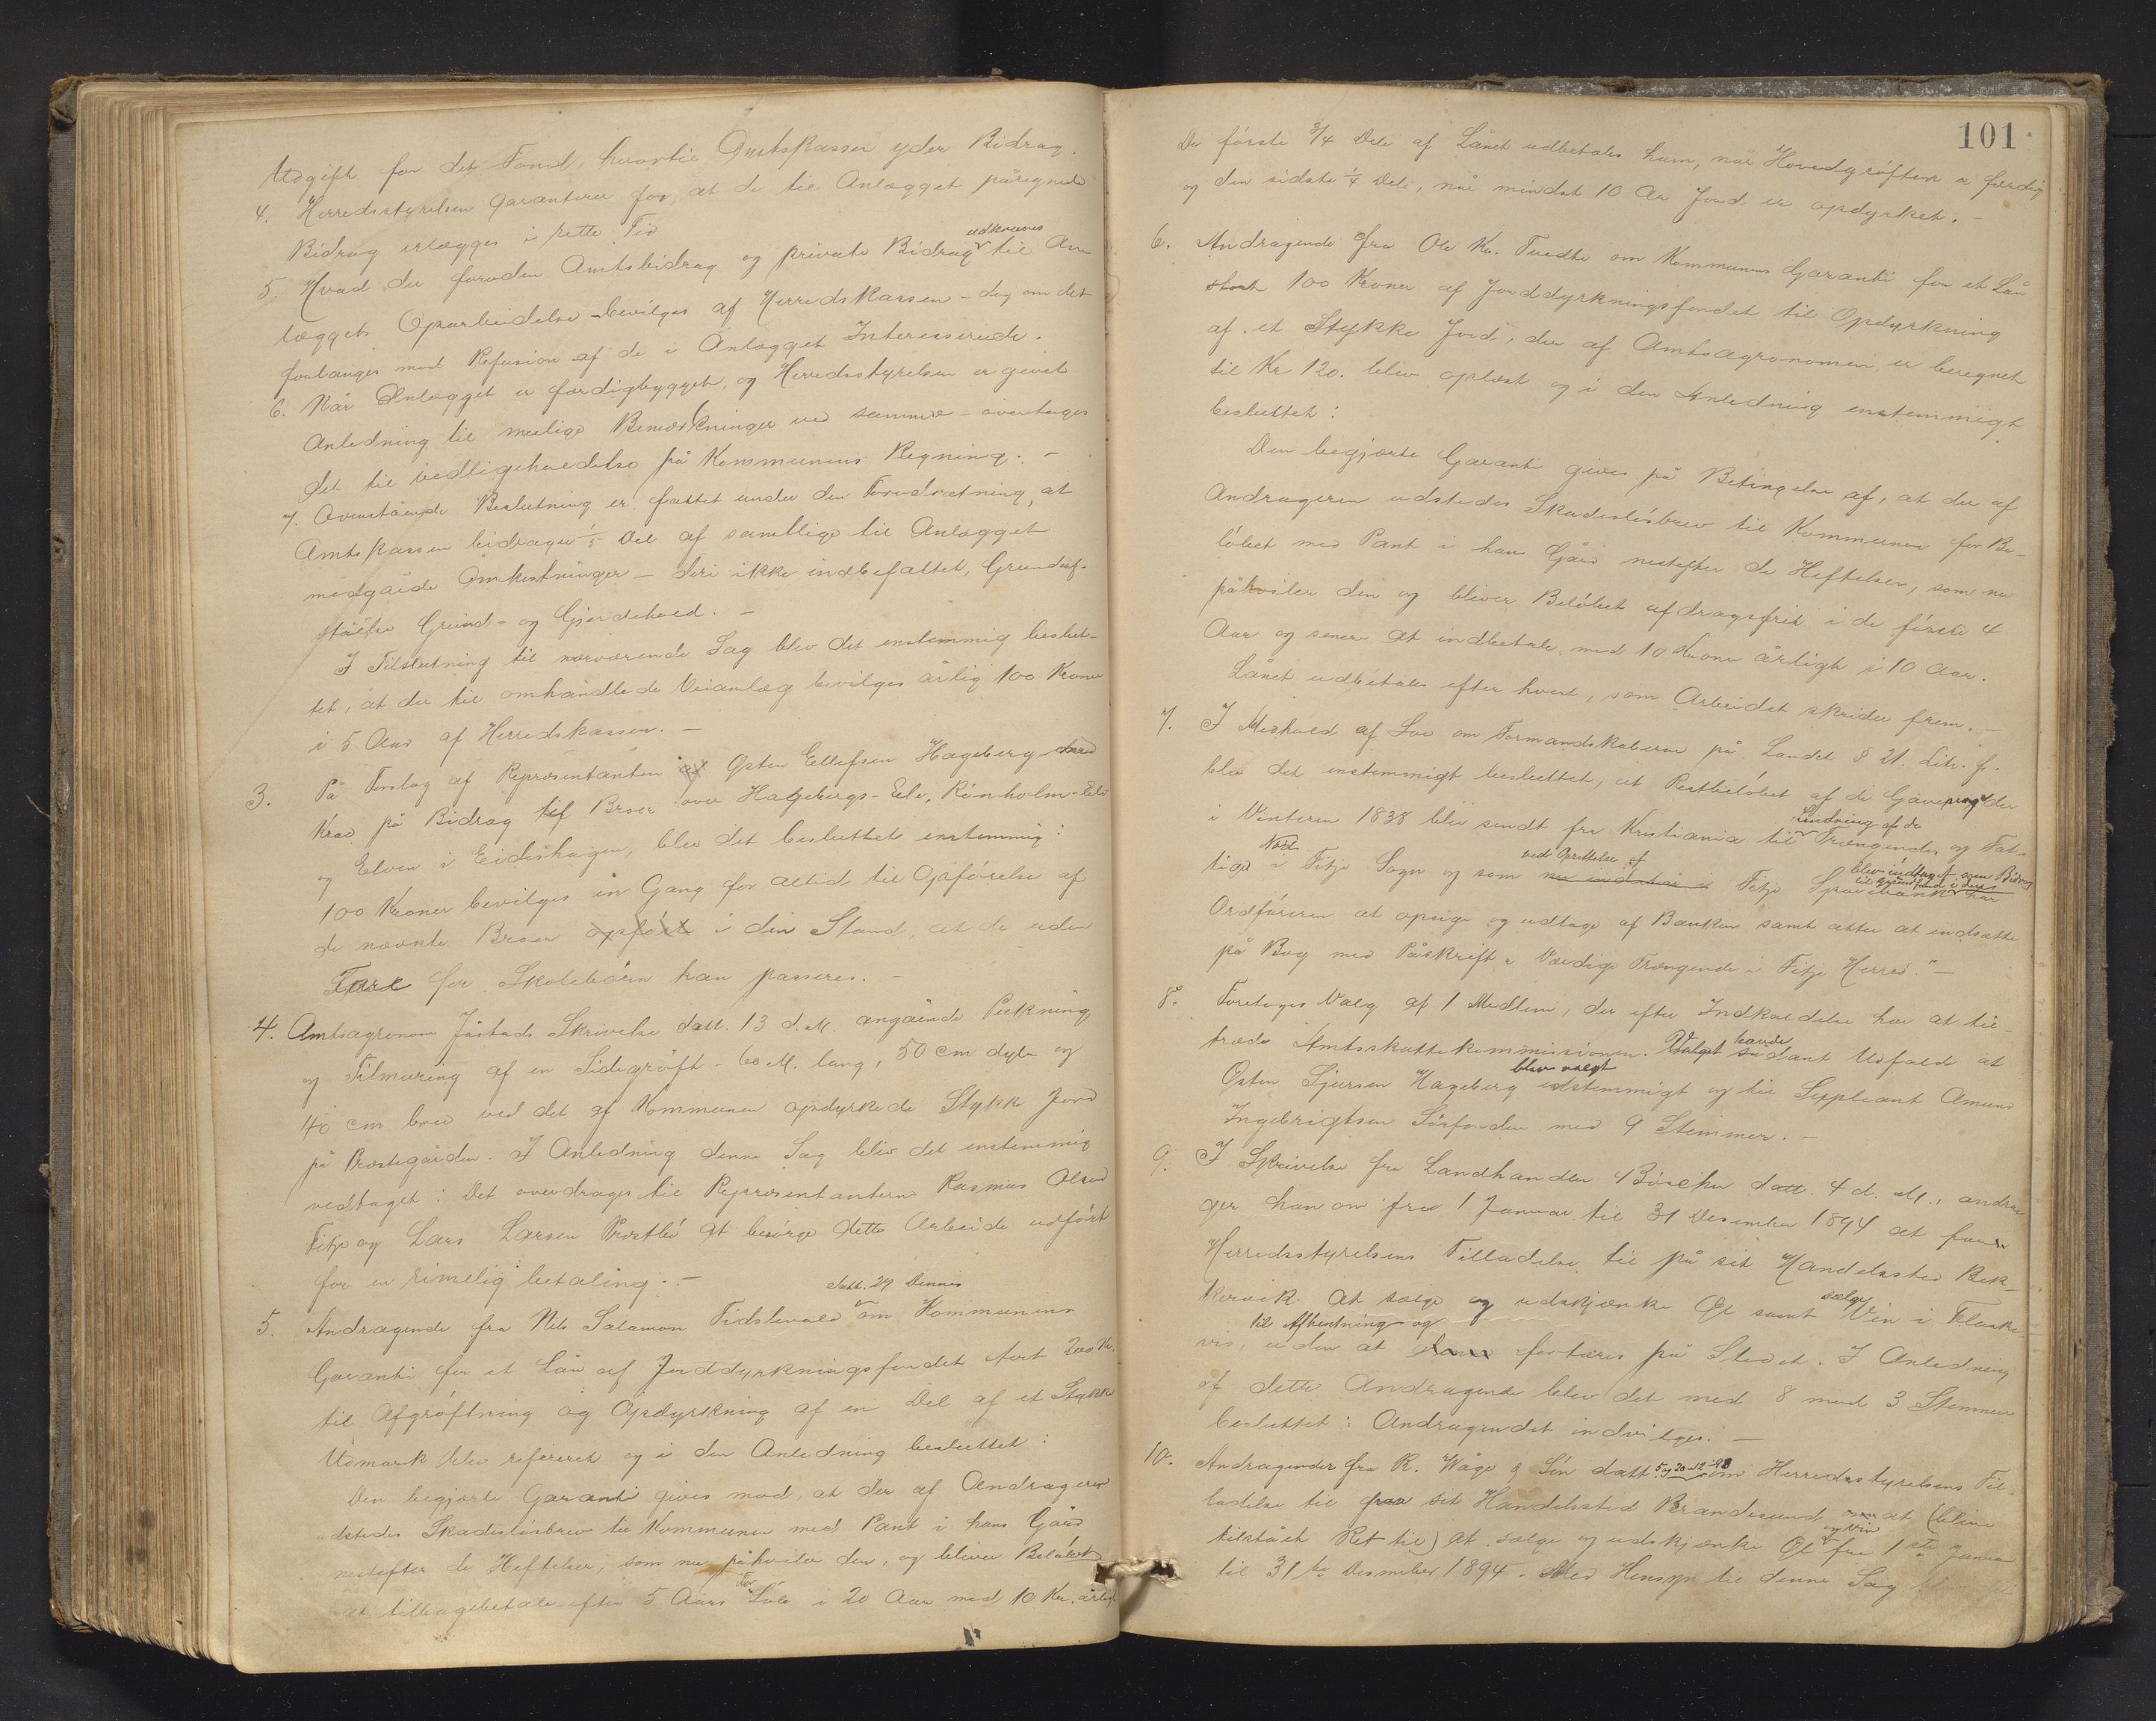 Udgift for det Fond, hvortil Amtskassen yder Bidrag.
4. Herredsstyrelsen garanterer for, at de til Anlægget påregnede
Bidrag erlægges i rette Tid
5. Hvad der foruden Amtsbidrag og private Bidrag udkræves til An-
læggets Oparbeidelse bevilges af Herredskassen - dog om det
forlanges mod Refusion af de i Anlægget Interesserede.
6. Når Anlægget er færdigbygget, og Herredsstyrelsen er givet
Anledning til mulige Bemærkninger ved samme - overtages
det til vedligeholdelse på Kommunens Regning. -
7. Ovenstående Beslutning er fattet under den Forudsætning, at
Amtskassen bidrager 1/5 Del af samtlige til Anlægget
medgåede Omkostninger - deri ikke indbefattet, Grundaf-
ståelse Grind- og Gjerdehold. -
I Tilslutning til nærværende Sag blev det enstemmig beslut-
tet, at der til omhandlede Veianlæg bevilges årlig 100 Kroner
i 5 Aar af Herredskassen. -
3. På Forslag af Repræsentanten Østen Ellefsen Hageberg med
Krav på Bidrag til Broer over Hagebergs-Elv, Rimholm-Elv
og Elven i Eidshaugen, blev det besluttet enstemmig:
100 Kroner bevilges en Gang for altid til Opførelse af
de nævnte Broer opført i den Stand, at de uden
Fare for Skolebørn kan passeres. -
4. Amtsagronom Jåstads Skrivelse datt. 13 d. M. angående Pukning
og Tilmuring af en Sidegrøft - 60 M. lang, 50 cm dyb og
40 cm bred ved det af Kommunen opdyrkede Stykke Jord
på Præstegården. I Anledning denne Sag blev det enstemmig
vedtaget: Det overdrages til Repræsentanterne Rasmus Olsen
Fitje og Lars Larsen Prestbø at besørge dette Arbeide udført
for en rimelig betaling. -
5. Andragende fra Nils Salamon Tislevold datt. 29 Dennes om Kommunens
Garanti for et Lån af Jorddyrkningsfondet stort 200 Kr.
til Afgrøftning og Opdyrkning af en Del af et Stykke
Udmark blev refereret og i den Anledning besluttet:
Den begjærte Garanti gives mod, at der af Andrageren
udstedes Skadesløsbrev til Kommunen med Pant i hans Gård
nestefter de Heftelser, som nu påhviler den, og bliver Beløbet
at tilbagebetale efter 5 Aars For Løb i 20 Aar med 10 Kr. årlig.
101
De første 3/4 Dele af Lånet udbetales ham, når Hovedgrøften er færdig
og den sidste 1/4 Del, når mindst 10 Ar Jord er opdyrket. -
6. Andragende fra Ole Kr. Tvedte om Kommunens Garanti for et Lån
stort 100 Kroner af Jorddyrkningsfondet til Opdyrkning
af et Stykke Jord, der af Amtsagronomen er beregnet
til Kr 120. blev oplæst og i den Anledning enstemmigt
besluttet:
Den begjærte Garanti gives på Betingelse af, at der af
Andrageren udstedes Skadesløsbrev til Kommunen for Be-
løbet med Pant i hans Gård nestefter de Heftelser, som nu
påhviler den og bliver Beløbet afdragsfrit i de første 4
Aar og senere at indbetale med 10 Kroner årligt i 10 Aar.
Lånet udbetales efter hvert, som Arbeidet skrider frem. -
7. I Medhold af Lov om Formandskaberne på Landet § 21. Litr. f.
blev det enstemmigt besluttet, at Restbeløbet af de Gavepenge der
i Vinteren 1838 blev sendt fra Kristiania til Lindring af de Trængendes og Fat-
tiges Nød i Fitje Sogn og som ved Oprettelse af Fitje Sparebank blev indtaget som Bidrag
til Grundfond i dens har
Ordføreren at opsige og udtage af Banken samt atter at indsætte
på Bog med Påskrift „Værdige Trængende i Fitje Herred." -
8. Foretoges Valg af 1 Medlem, der efter Indkaldelse har at til-
træde Amtsskattekommissionen. Valget havde sådant Udfald at
Østen Sjursen Hageberg blev valgt enstemmigt og til Suppleant Amund
Ingebrigtsen Sørfonden med 9 Stemmer. -
9. I Skrivelse fra Landhandler datt. 4 d. M., andra-
ger han om fra 1 Januar til 31 Desember 1894 at få
Herredsstyrelsens Tilladelse til på sit Handelssted Bek-
kervik at sælge og udskjænke Øl samt sælge Vin i Flaske-
vis, til Afhentning og uden at fortæres på Stedet. I Anledning
af dette Andragende blev det med 8 mod 3 Stemmer
besluttet: Andragendet indvilges. -
10. Andragender fra R. Våge & Søn datt 5 og 20-12-93 om Herredsstyrelsens Til-
ladelse til sit Handelssted Brandesund at (blive
tilstået Ret til) at sælge og udskjænke Øl og Vin fra 1ste Januar
til 31te Desember 1894. Med Hensyn til denne Sag